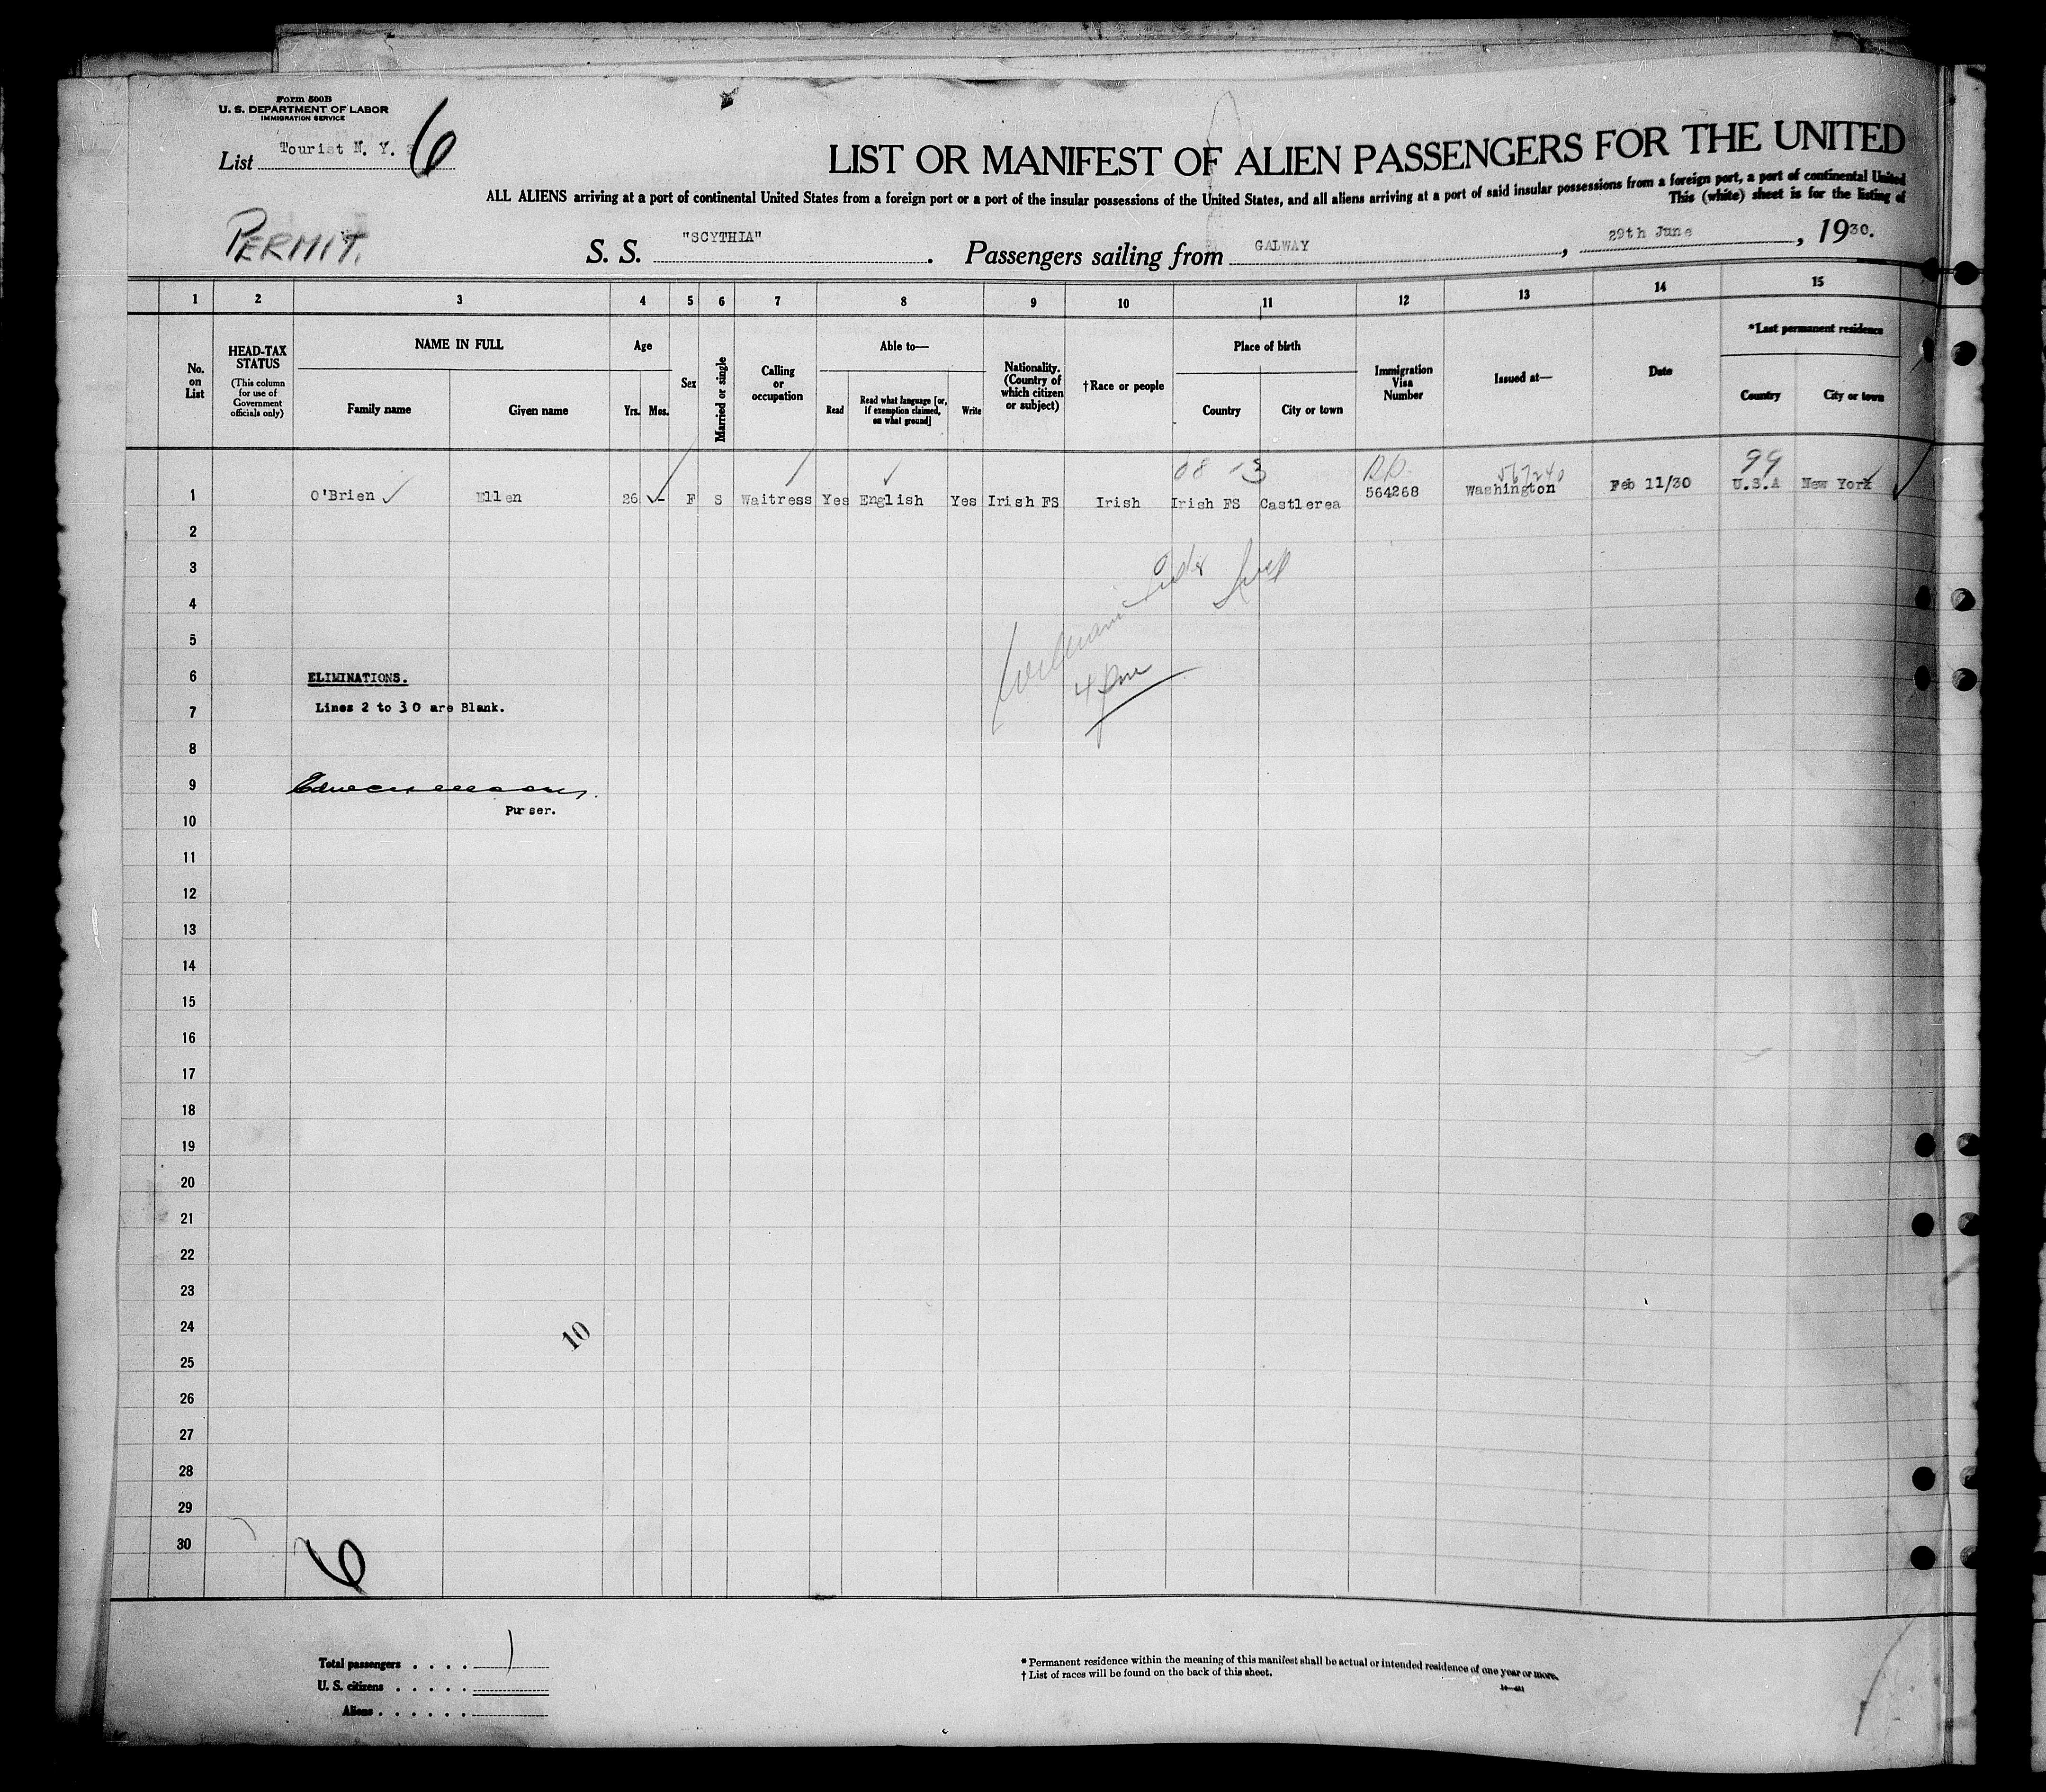 Form 500B
U. S. DEPARTMENT OF LABOR
IMMIGRATION SERVICE
List Tourist N. Y. 6
LIST OR MANIFEST OF ALIEN PASSENGERS FOR THE UNITED
ALL ALIENS arriving at a port of continental United States from a foreign port or a port of the insular possessions of the United States, and all aliens arriving at a port of said insular possessions from a foreign port, a port of continental United
This (white) sheet is for the listing of
PERMIT.
S. S. "SCYTHIA". Passengers sailing from GALWAY, 29th June, 1930.
1 2 3 4 5 6 7 8 9 10 11 12 13 14 15
No. on List
HEAD-TAX STATUS
(This column for use of Government officials only)
NAME IN FULL
Family name
Given name
Age
Yrs. Mos.
Sex
Married or single
Calling or occupation
Able to—
Read
Read what language [or, if exemption claimed, on what ground]
Write
Nationality. (Country of which citizen or subject)
†Race or people
Place of birth
Country
City or town
Immigration Visa Number
Issued at—
Date
*Last permanent residence
Country
City or town
567240
99
1 O'Brien Ellen 26 - F S Waitress Yes English Yes Irish FS Irish Irish FS Castlerea 564268 Washington Feb 11/30 U.S.A New York
2
3
4
5
6 ELIMINATIONS.
7 Lines 2 to 30 are Blank.
8
9
Purser.
10
11
12
13
14
15
16
17
18
19
20
21
22
23
24
10
25
26
27
28
29
30
6
Total passengers . . . . 1
U. S. citizens . . . . .
Aliens . . . . . .
* Permanent residence within the meaning of this manifest shall be actual or intended residence of one year or more.
† List of races will be found on the back of this sheet.